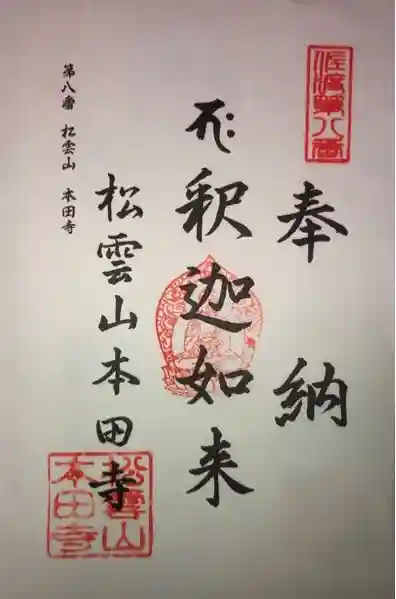 佐渡第八番
奉納
釈迦如来
松雲山本田寺
第八番 松雲山 本田寺
松雲山
本田寺